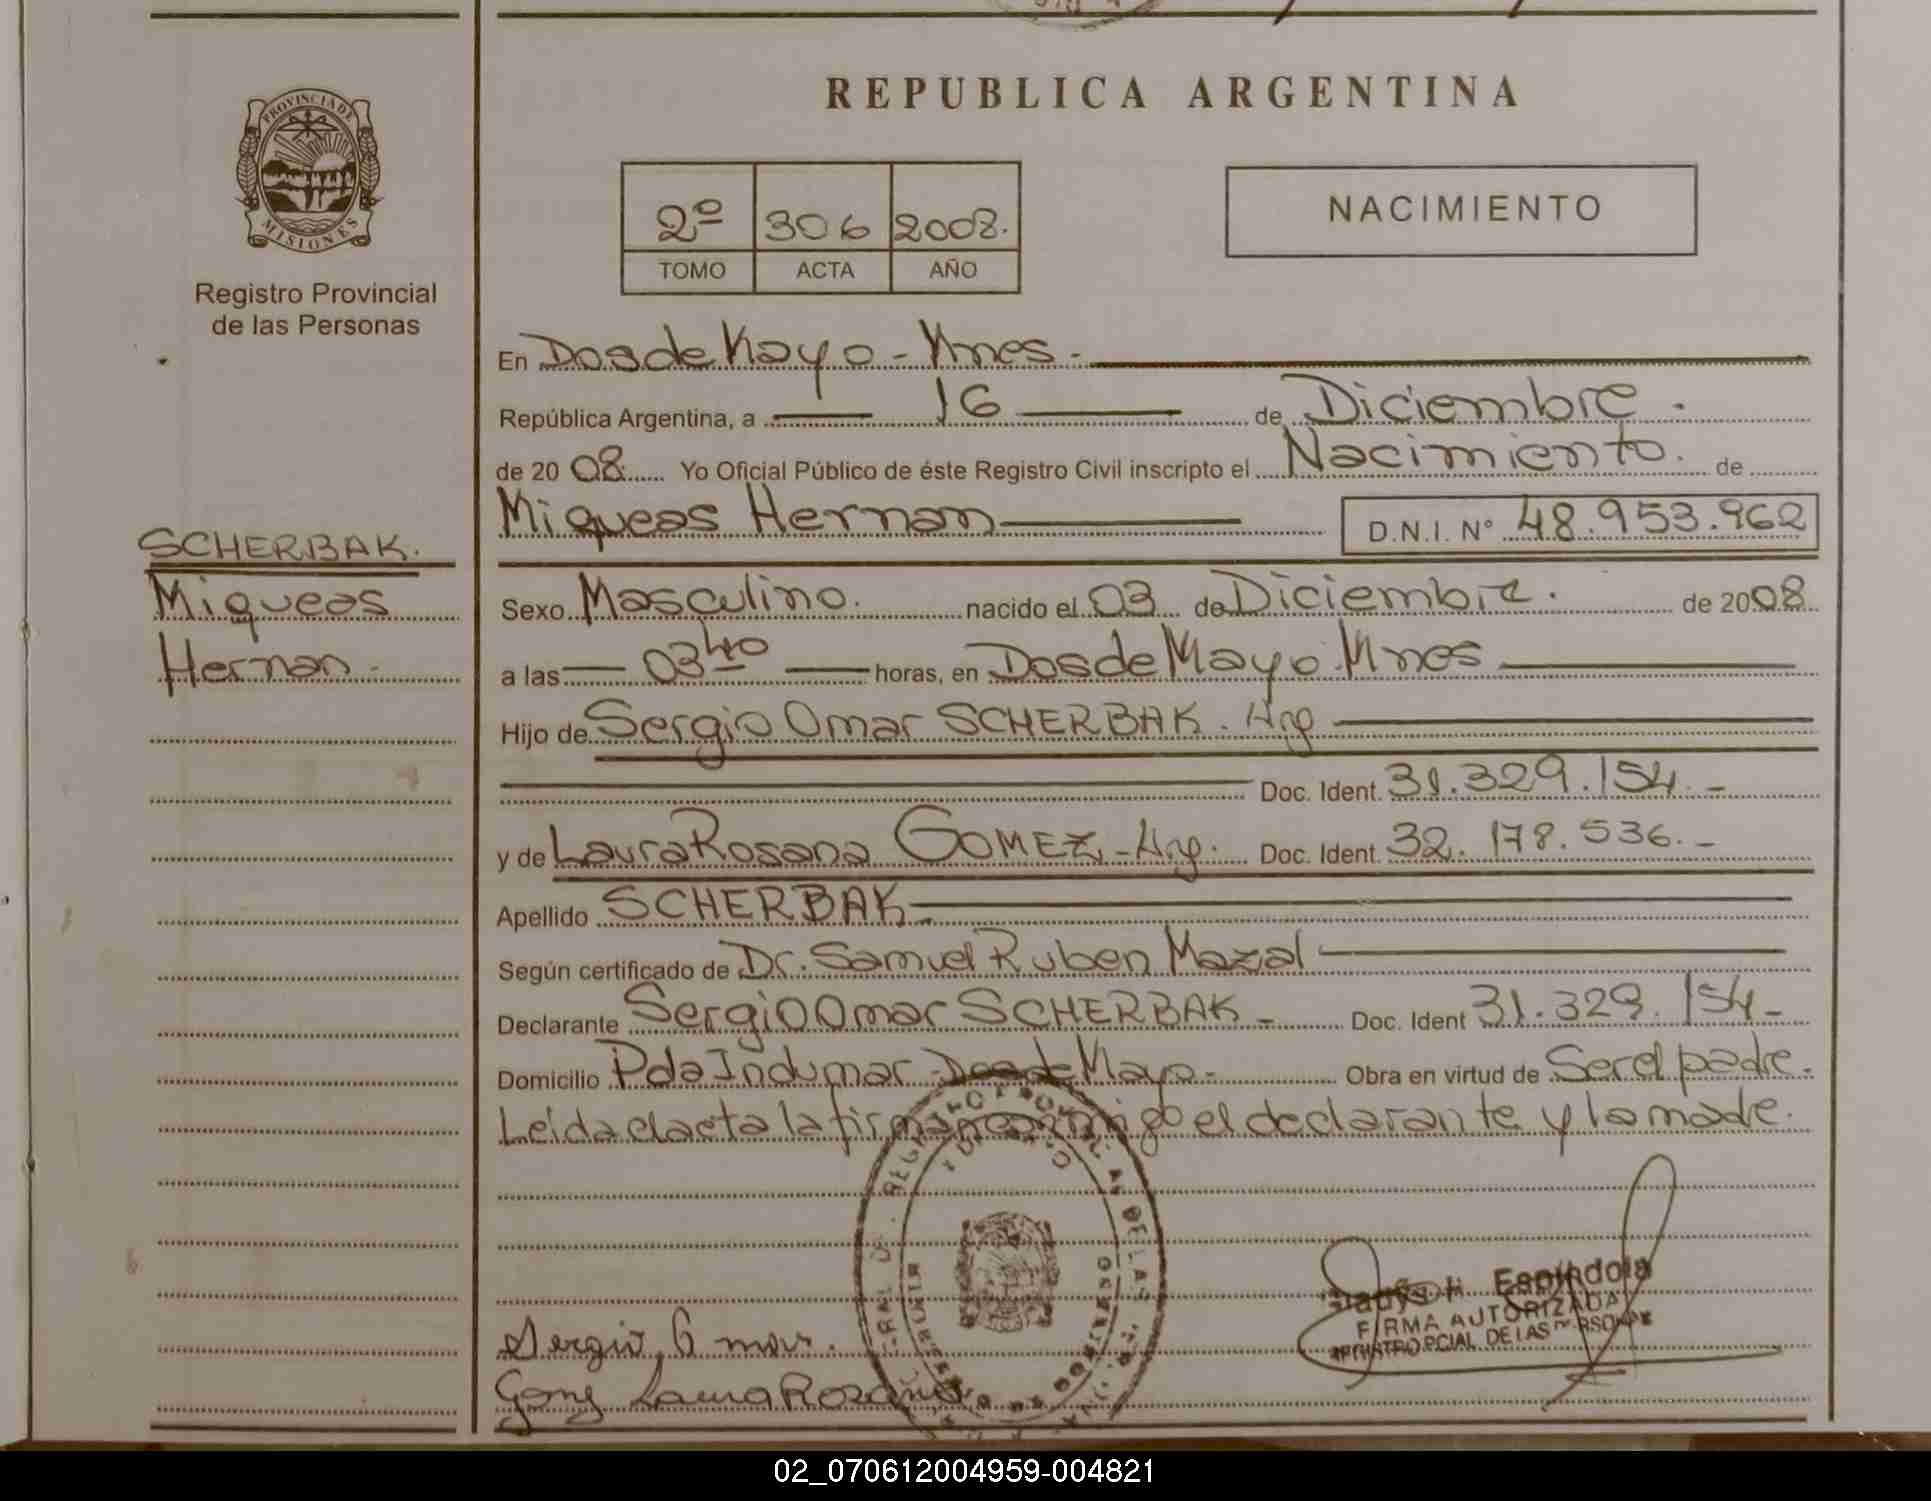 REPUBLICA ARGENTINA
PROVINCIA DE
MISIONES
Registro Provincial
de las Personas
2º 306 2008.
TOMO ACTA AÑO
NACIMIENTO
En Dos de Mayo - Mnes -
República Argentina, a 16 de Diciembre.
de 20 08 Yo Oficial Público de éste Registro Civil inscripto el Nacimiento. de
Miqueas Hernan D.N.I. Nº 48.953.962
SCHERBAK.
Miqueas
Hernan -
Sexo Masculino. nacido el 03 de Diciembre. de 2008
a las 03 40 horas, en Dos de Mayo Mnes
Hijo de Sergio Omar SCHERBAK. Arg
Doc. Ident. 31.329.154.-
y de Laura Rosana GOMEZ - Arg. Doc. Ident. 32.178.536.-
Apellido SCHERBAK
Según certificado de Dr. Samuel Ruben Mazal
Declarante Sergio Omar SCHERBAK - Doc. Ident 31.329.154-
Domicilio Pda Indumar - Dos de Mayo - Obra en virtud de Ser el padre.
Leida el acta la firman conmigo el declarante y la madre.
Sergio Omar.
Gomez Laura Rosana
Espindola
FIRMA AUTORIZADA
PCIAL DE LAS
02_070612004959-004821